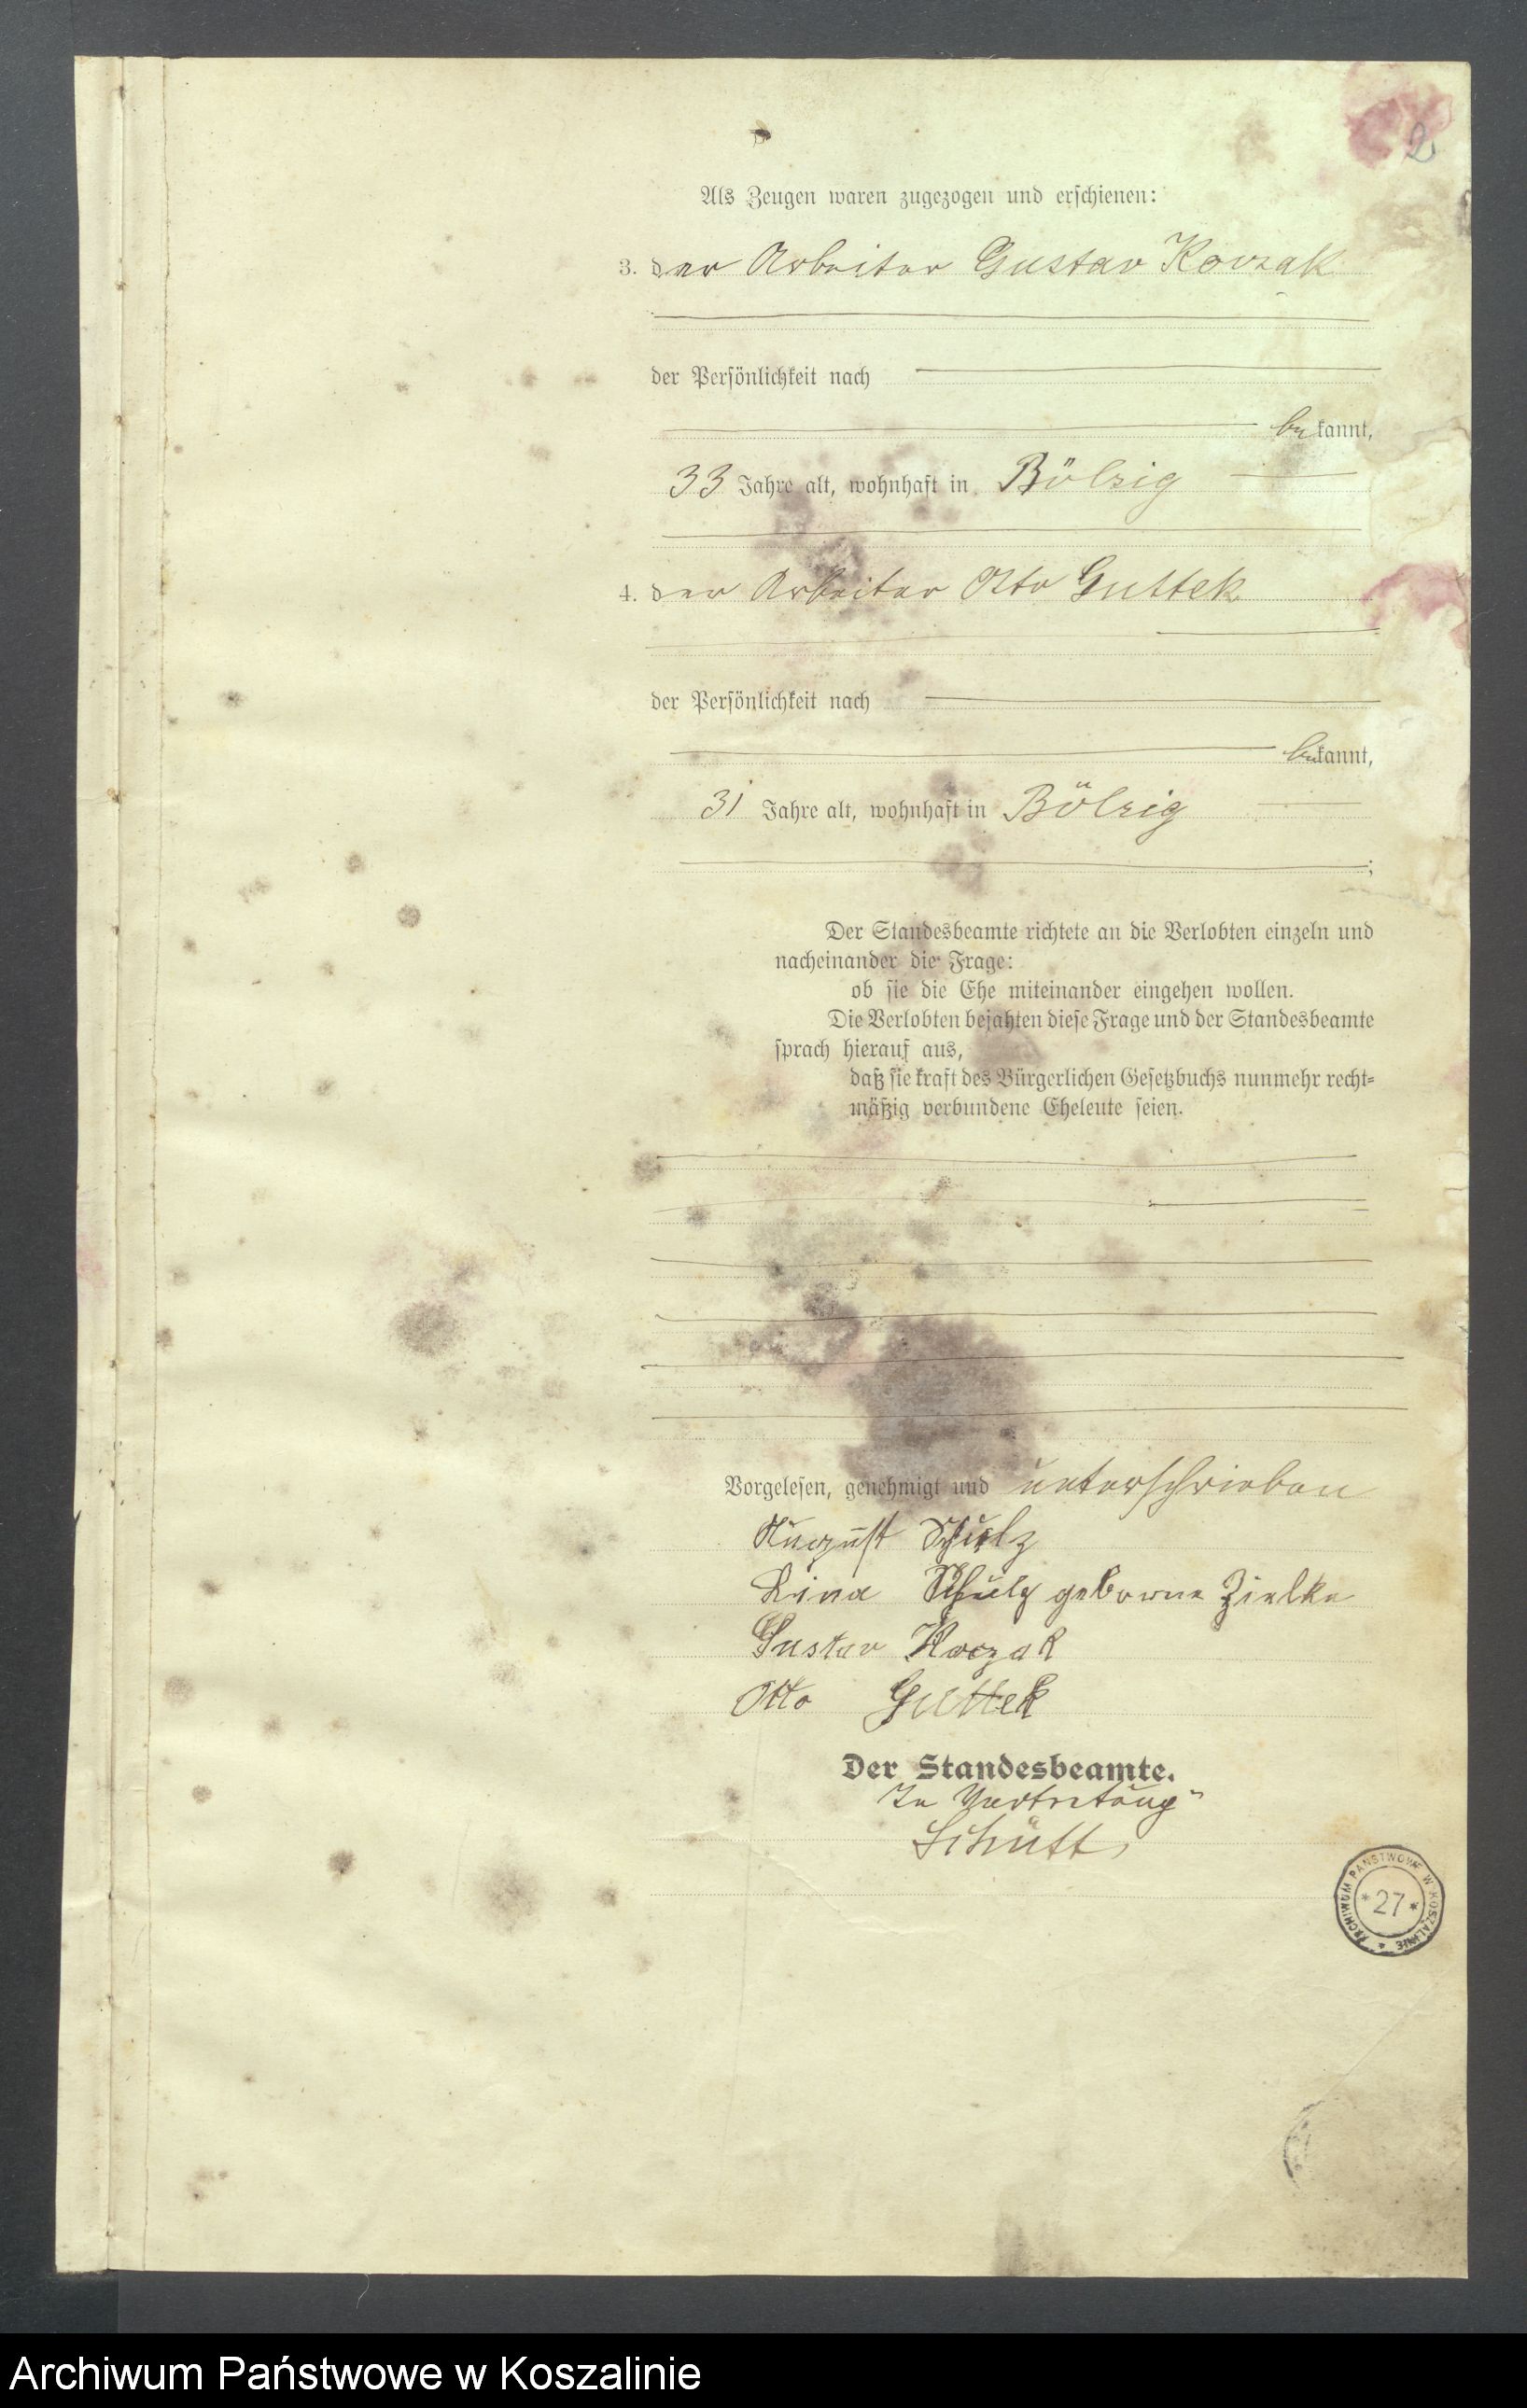 2
Als Zeugen waren zugezogen und erschienen:
3. der Arbeiter Gustav Korzak
der Persönlichkeit nach
be kannt,
33 Jahre alt, wohnhaft in Bölzig
4. der Arbeiter Otto Guttek
der Persönlichkeit nach
bekannt,
31 Jahre alt, wohnhaft in Bölzig
;
Der Standesbeamte richtete an die Verlobten einzeln und
nacheinander die Frage:
ob sie die Ehe miteinander eingehen wollen.
Die Verlobten bejahten diese Frage und der Standesbeamte
sprach hierauf aus,
daß sie kraft des Bürgerlichen Gesetzbuchs nunmehr recht-
mäßig verbundene Eheleute seien.
Vorgelesen, genehmigt und unterschrieben
August Schulz
Lina Schulz geborne Zielke
Gustav Korzak
Otto Guttek
Der Standesbeamte.
In Vertretung
Schütt
ARCHIWUM PAŃSTWOWE W KOSZALINIE
* 27 *
Archiwum Państwowe w Koszalinie